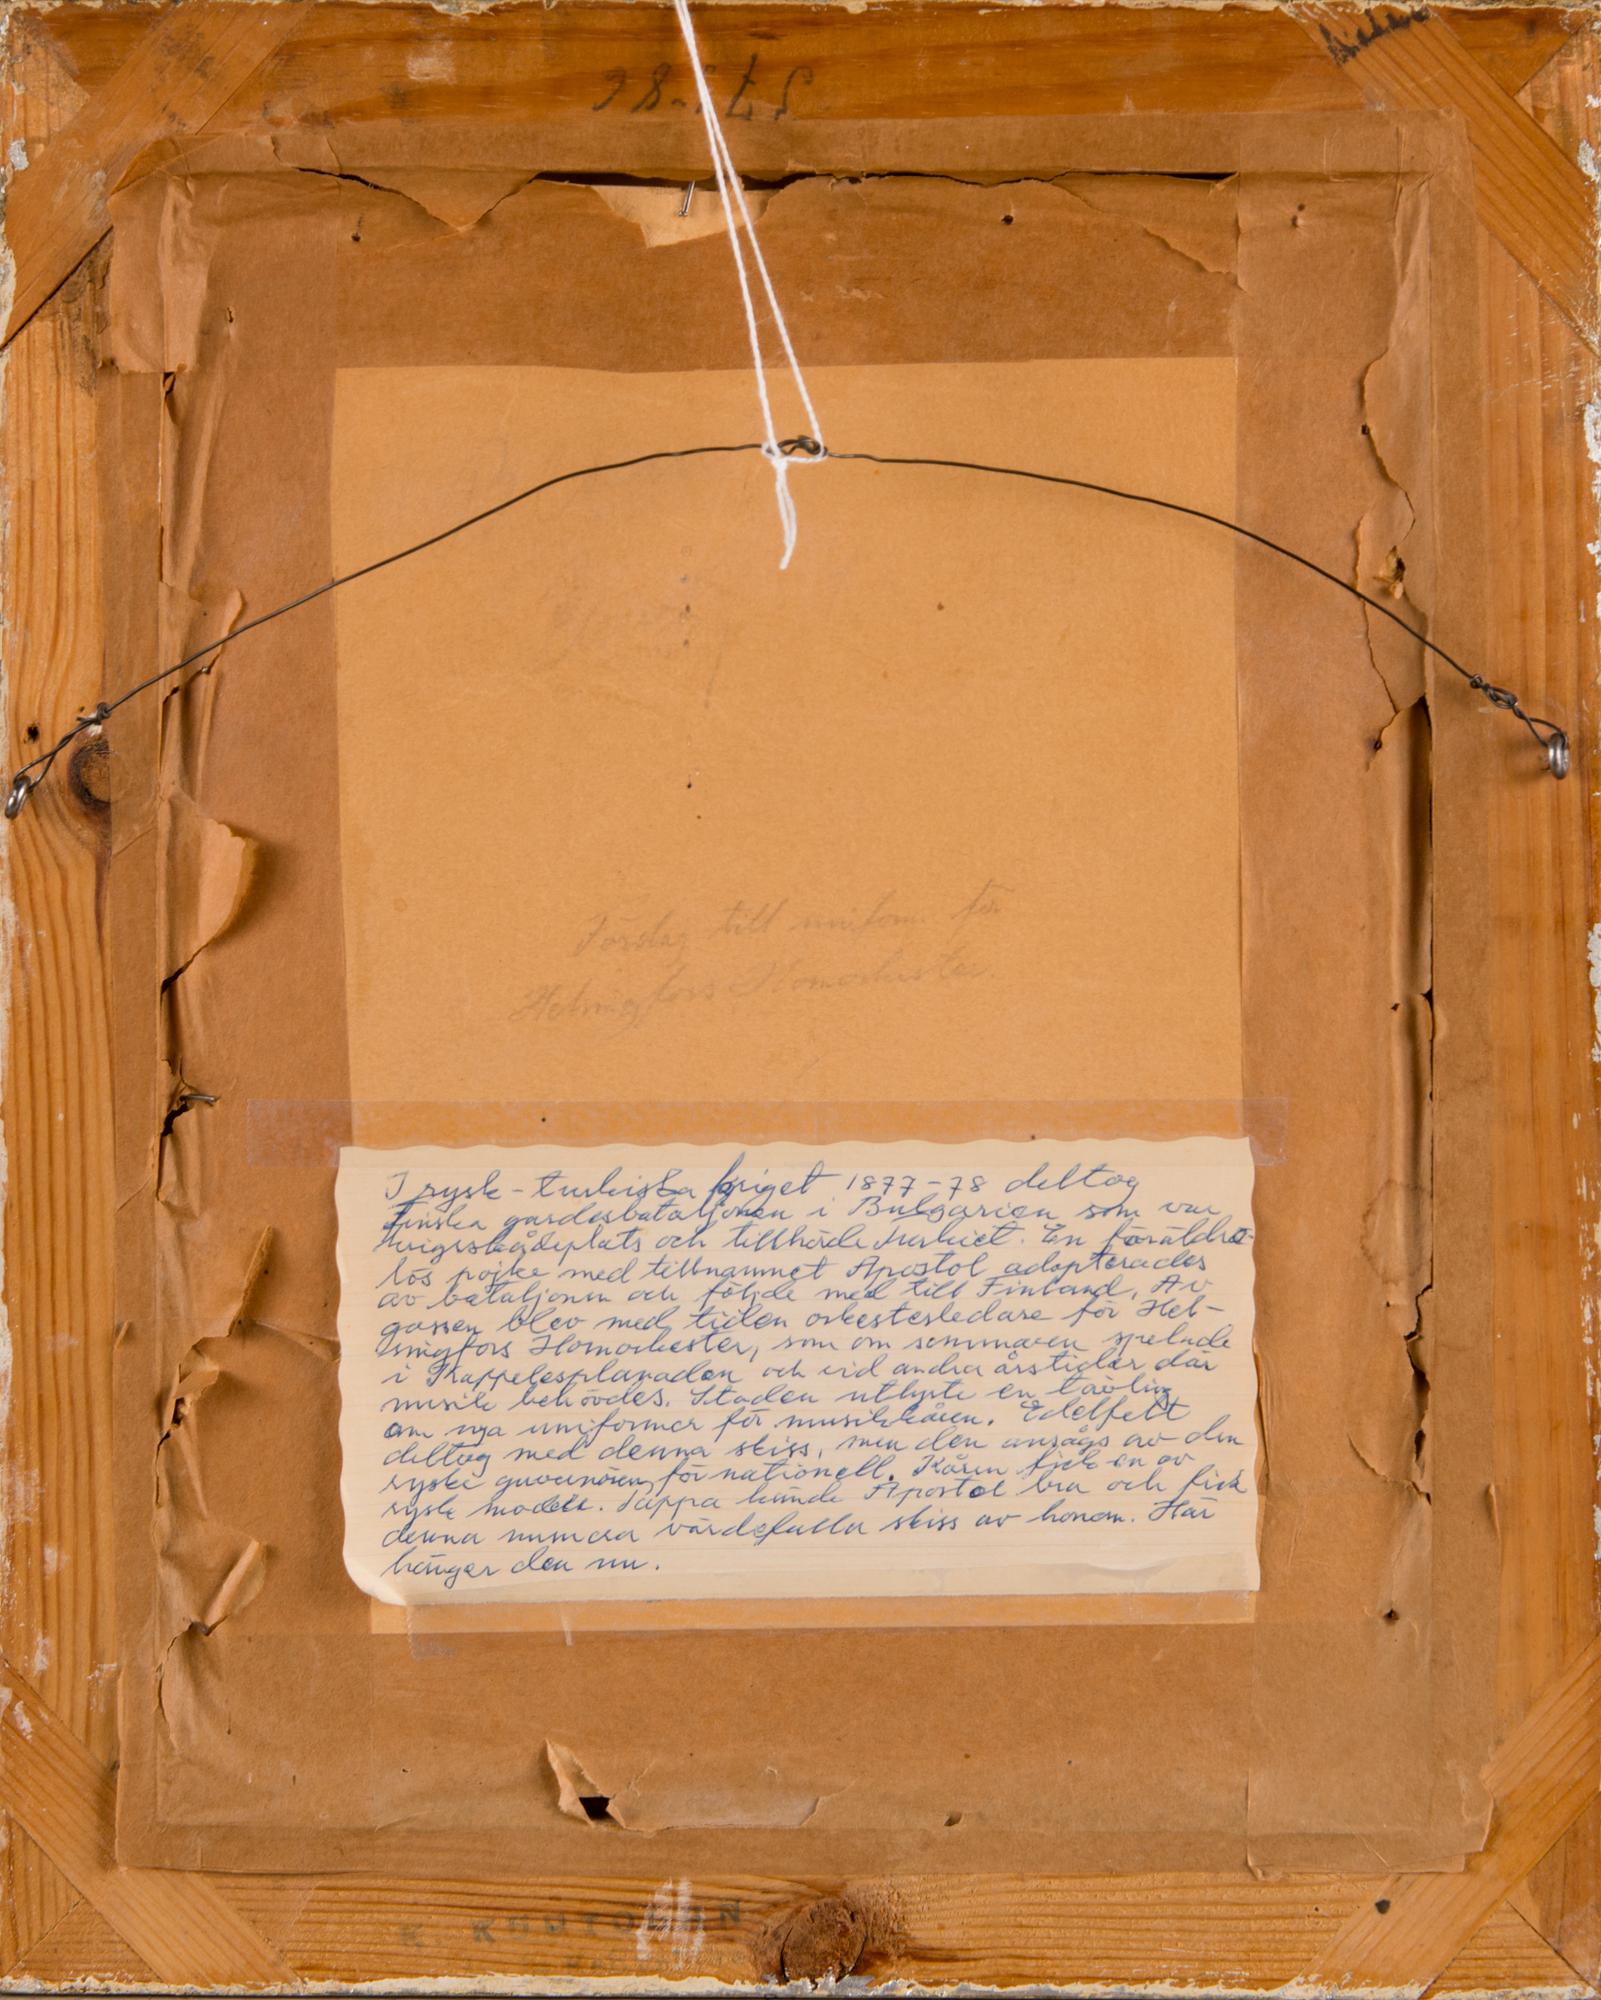 Förslag till uniform för
Helsingfors Hornorkester.
I rysk-turkiska kriget 1877-78 deltog
finska gardesbataljonen i Bulgarien som var
krigsskådeplats och tillhörde turkiet. En föräldra-
lös pojke med tillnamnet Apostol adopterades
av bataljonen och följde med till Finland. Av
gossen blev med tiden orkesterledare för Hel-
singfors Hornorkester, som om sommaren spelade
i Kappelesplanaden och vid andra årstider där
musik behövdes. Staden utlyste en tävling
om nya uniformer för musikkåren. Edelfelt
deltog med denna skiss, men den ansågs av den
ryske guvernören för nationell. Kåren fick en av
rysk modell. Pappa kände Apostol bra och fick
denna numera värdefulla skiss av honom. Här
hänger den nu.